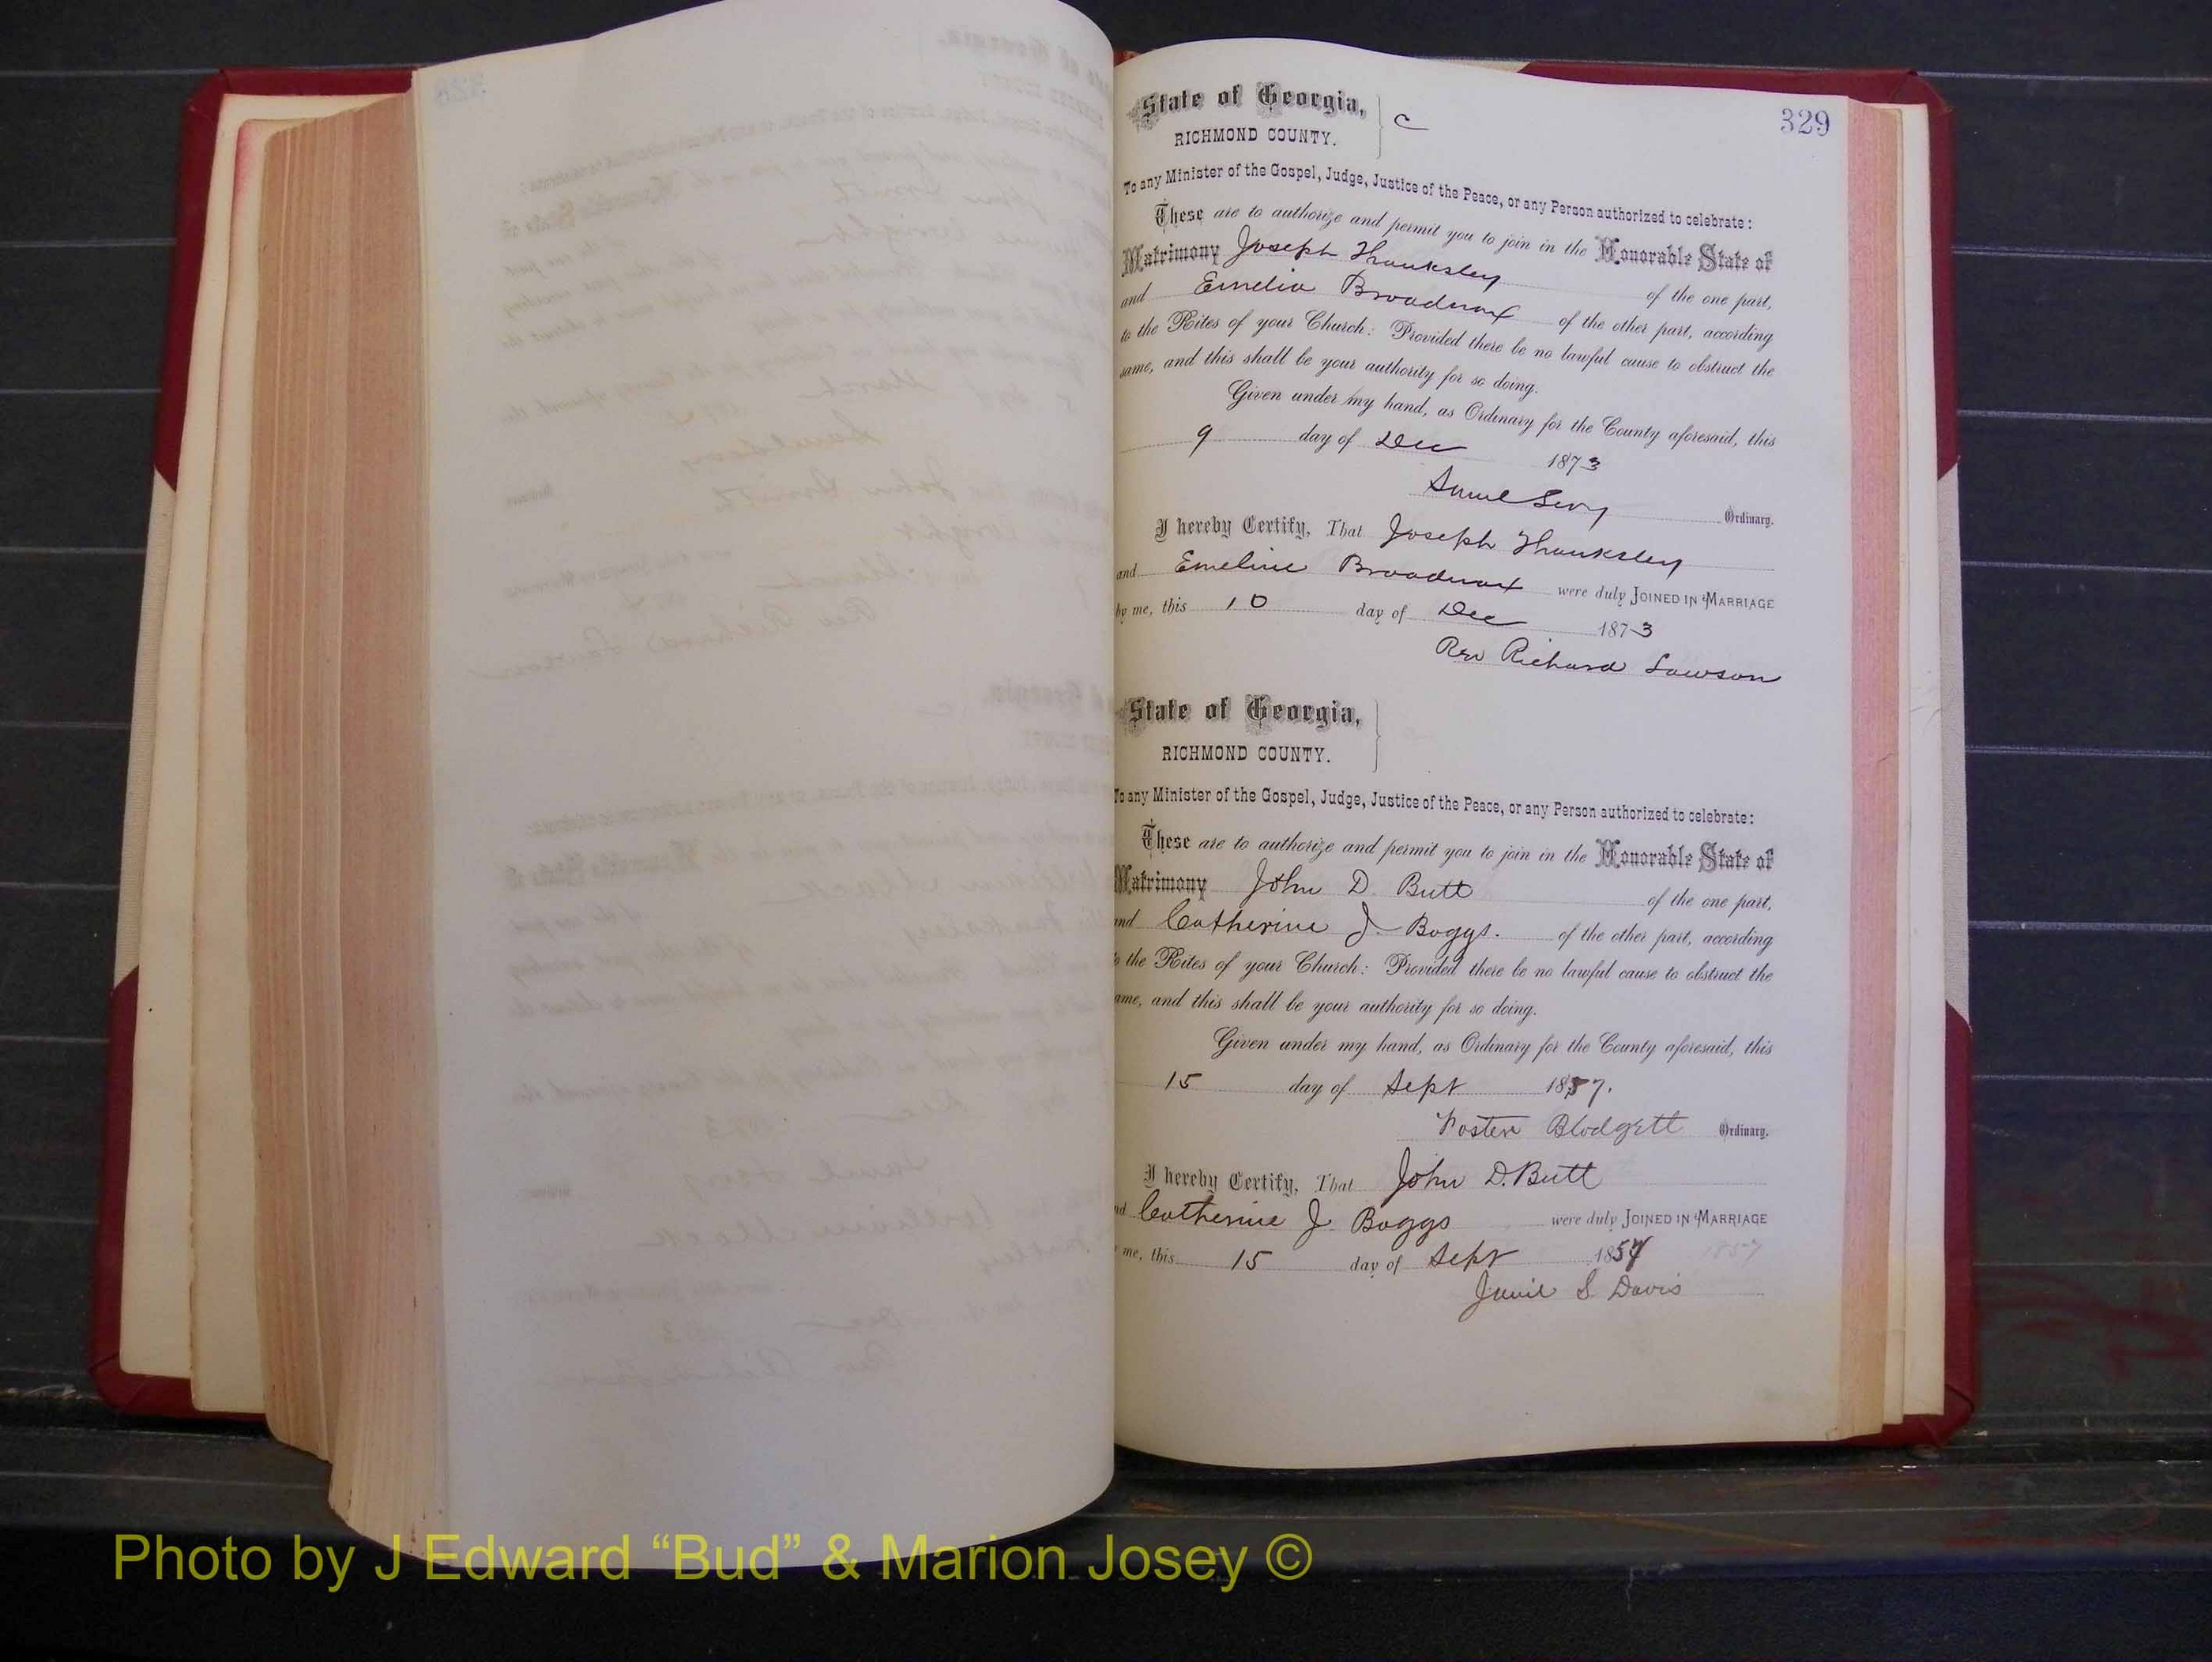 329
State of Georgia, C
RICHMOND COUNTY.
To any Minister of the Gospel, Judge, Justice of the Peace, or any Person authorized to celebrate:
These are to authorize and permit you to join in the Honorable State of
Matrimony Joseph Thanksley of the one part,
and Emelia Broadnax of the other part, according
to the Rites of your Church: Provided there be no lawful cause to obstruct the
same, and this shall be your authority for so doing.
Given under my hand, as Ordinary for the County aforesaid, this
9 day of Dec 1873
Samuel Levy Ordinary.
I hereby Certify, That Joseph Thanksley
and Emeline Broadnax were duly JOINED IN MARRIAGE
by me, this 10 day of Dec 1873
Rev Richard Lawson
State of Georgia,
RICHMOND COUNTY.
To any Minister of the Gospel, Judge, Justice of the Peace, or any Person authorized to celebrate:
These are to authorize and permit you to join in the Honorable State of
Matrimony John D. Butt of the one part,
and Catherine J. Boggs. of the other part, according
to the Rites of your Church: Provided there be no lawful cause to obstruct the
ame, and this shall be your authority for so doing.
Given under my hand, as Ordinary for the County aforesaid, this
15 day of Sept 1857.
Foster Blodgett Ordinary.
I hereby Certify, That John D. Butt
nd Catherine J Boggs were duly JOINED IN MARRIAGE
me, this 15 day of Sept 1857 1857
S Davis
Photo by J Edward “Bud” & Marion Josey ©